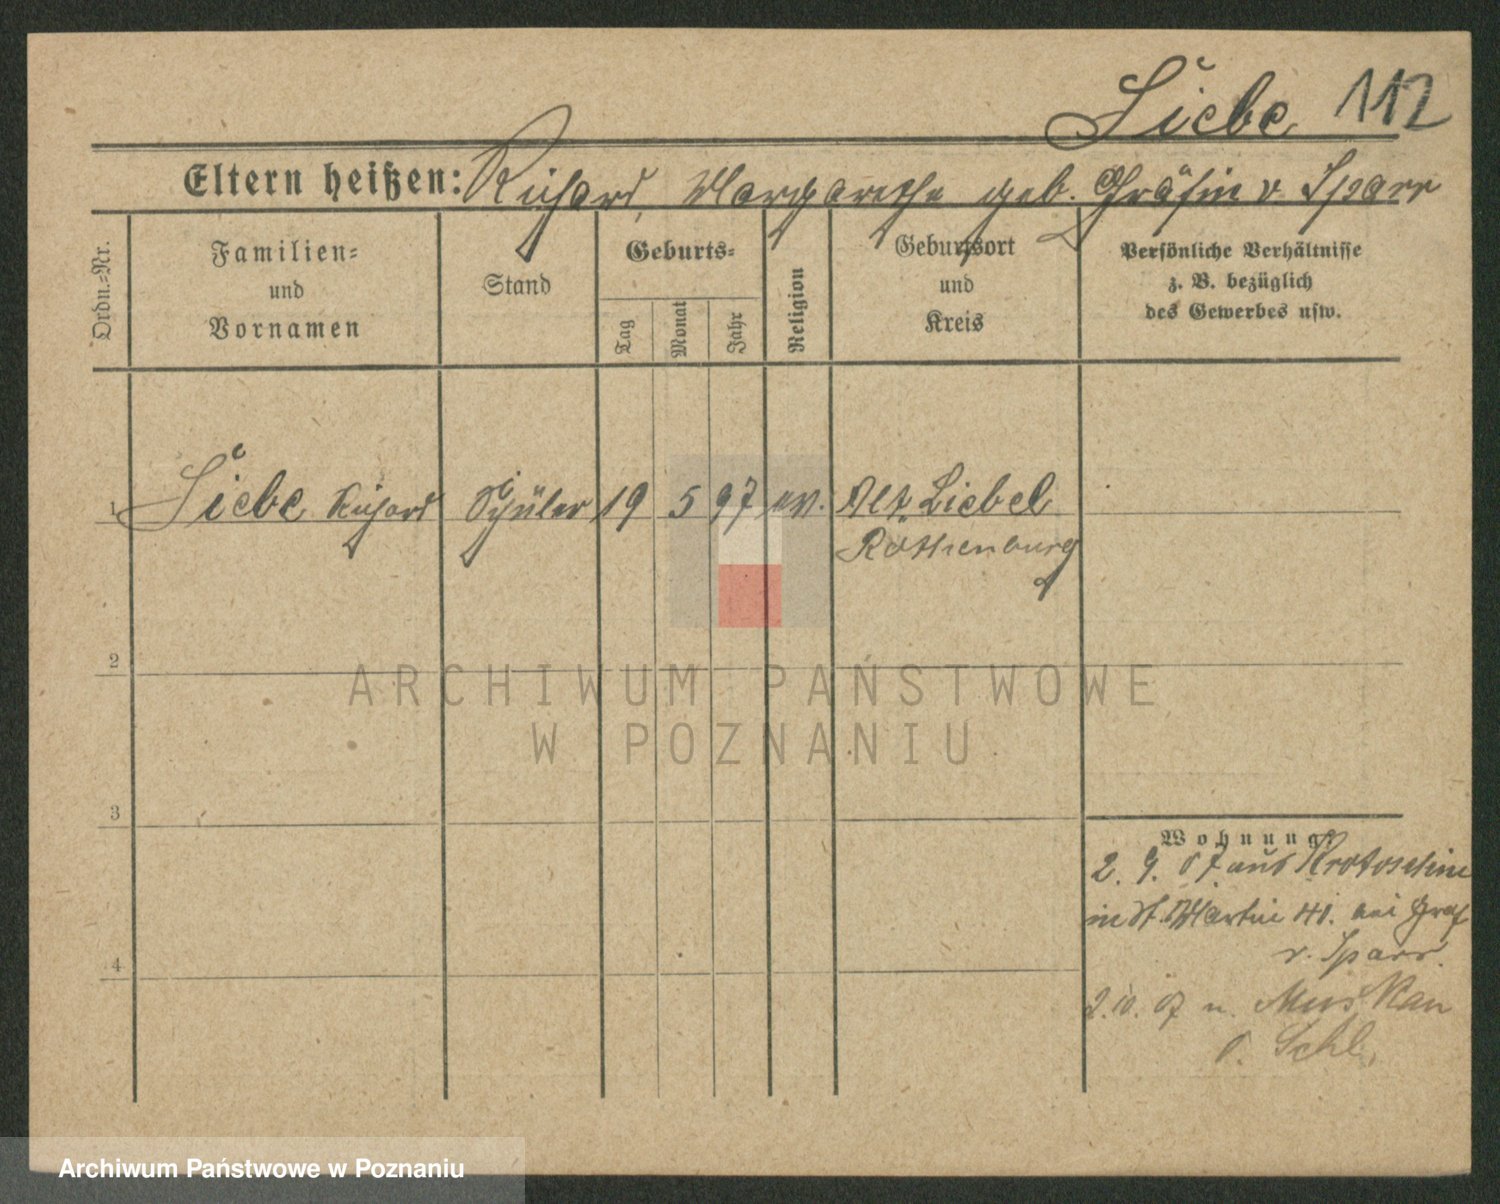 Liebe 112
Eltern heißen: Richard, Margarethe geb. Gräfin v. Sparr
Ordn.-Nr.
Familien-
und
Vornamen
Stand
Geburts-
Tag
Monat
Jahr
Religion
Geburtsort
und
Kreis
Persönliche Verhältnisse
z. B. bezüglich
des Gewerbes usw.
1 Liebe Richard Schüler 19 5 97 ev. Alt Liebel
Rothenburg
2
ARCHIWUM PAŃSTWOWE
W POZNANIU
3
Wohnung:
2. 9. 07. aus Krotoschin
in St. Martin 41. bei Graf
v. Sparr.
4
2.10. 07 n. Muskau
Schl.
Archiwum Państwowe w Poznaniu